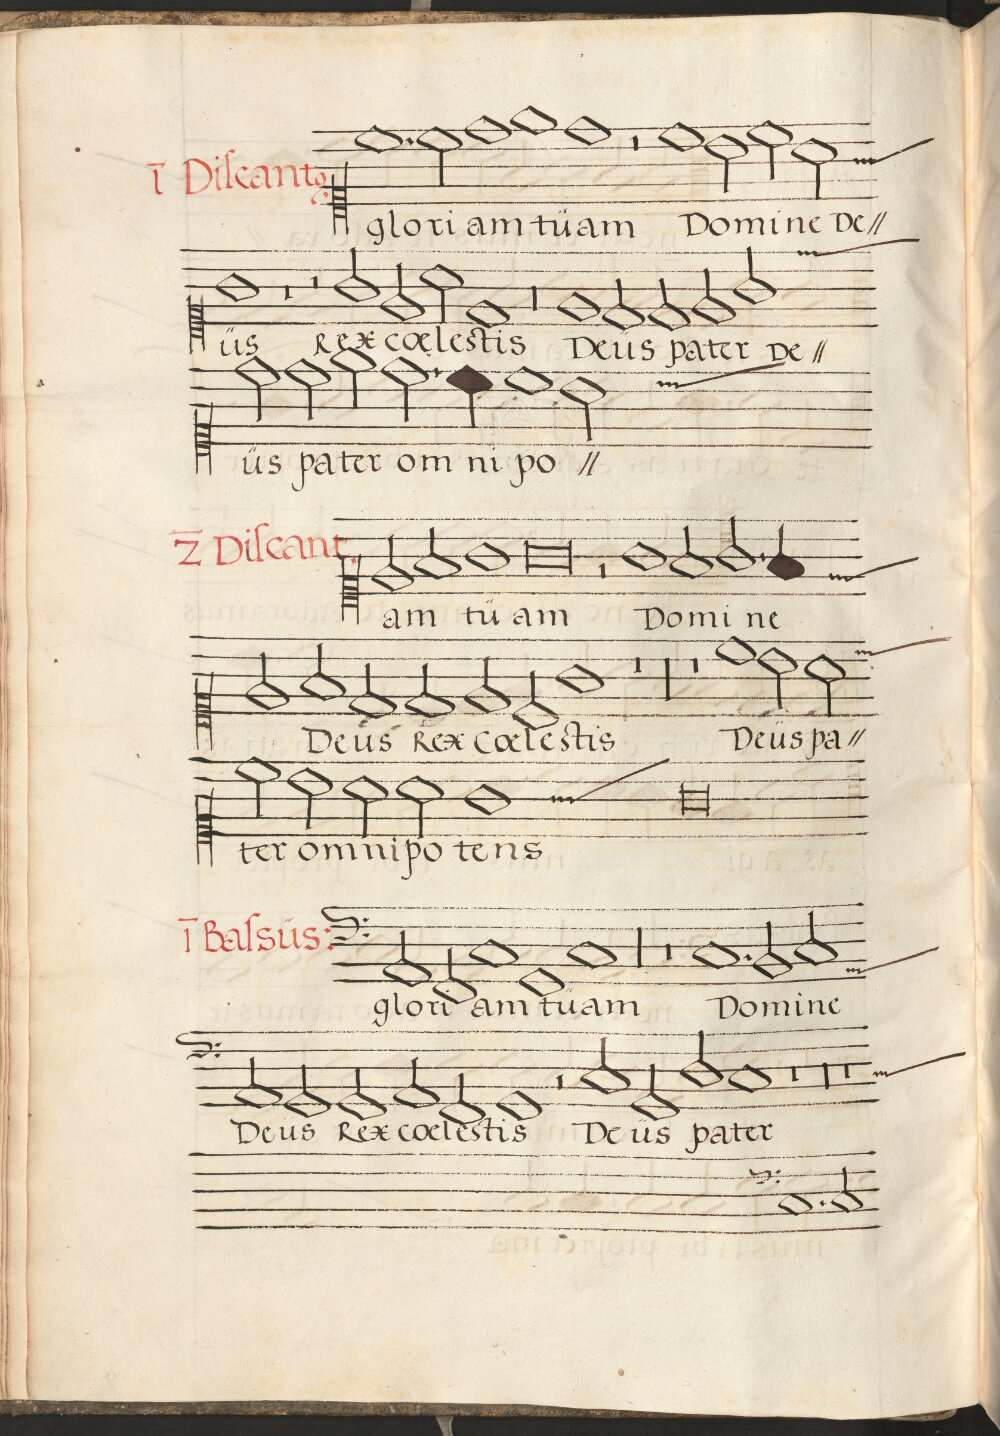 1̄ Diſcantꝰ
gloriam tüam Domine De//
üs Rex cœlestis Deüs pater De //
üs pater omnipo //
2̄ Diſcant.
am tüam Domine
Deüs Rex Cœlestis Deüs pa//
ter omnipotens
1̄ Baſsüs:
gloriam tüam Domine
Deus Rex cœlestis Deüs pater